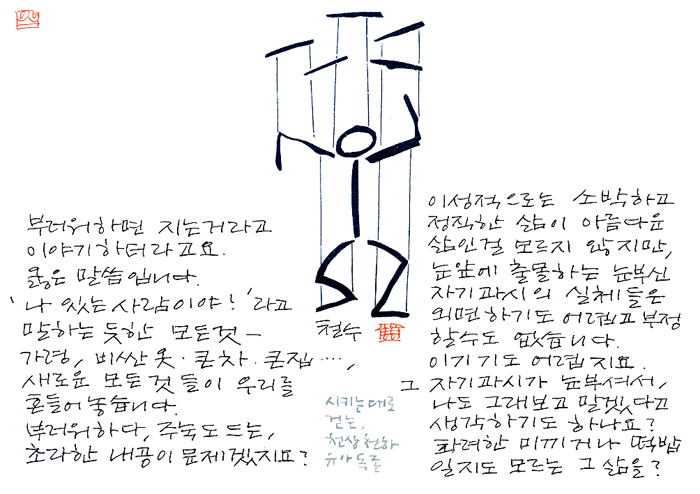 부러워하면 지는거라고
이야기하더라고요.
옳은 말씀입니다.
'나 있는 사람이야!'라고
말하는 듯한 모든것 —
가령, 비싼 옷 · 큰차 · 큰집 ····,
새로운 모든것 들이 우리를
흔들어 놓습니다.
부러워하다, 주눅도 드는,
초라한 내공이 문제겠지요?
철수
시키는대로
걷는,
천상천하
유아독존
이성적으로는 소박하고
정직한 삶이 아름다운
삶인걸 모르지 않지만,
눈앞에 출몰하는 눈부신
자기과시의 실체들은
외면하기도 어렵고 부정
할수도 없습니다.
이기기도 어렵지요.
그 자기과시가 눈부셔서,
나도 그래보고 말겠다고
생각하기도 하나요?
화려한 미끼거나 떡밥
일지도 모르는 그 삶을?